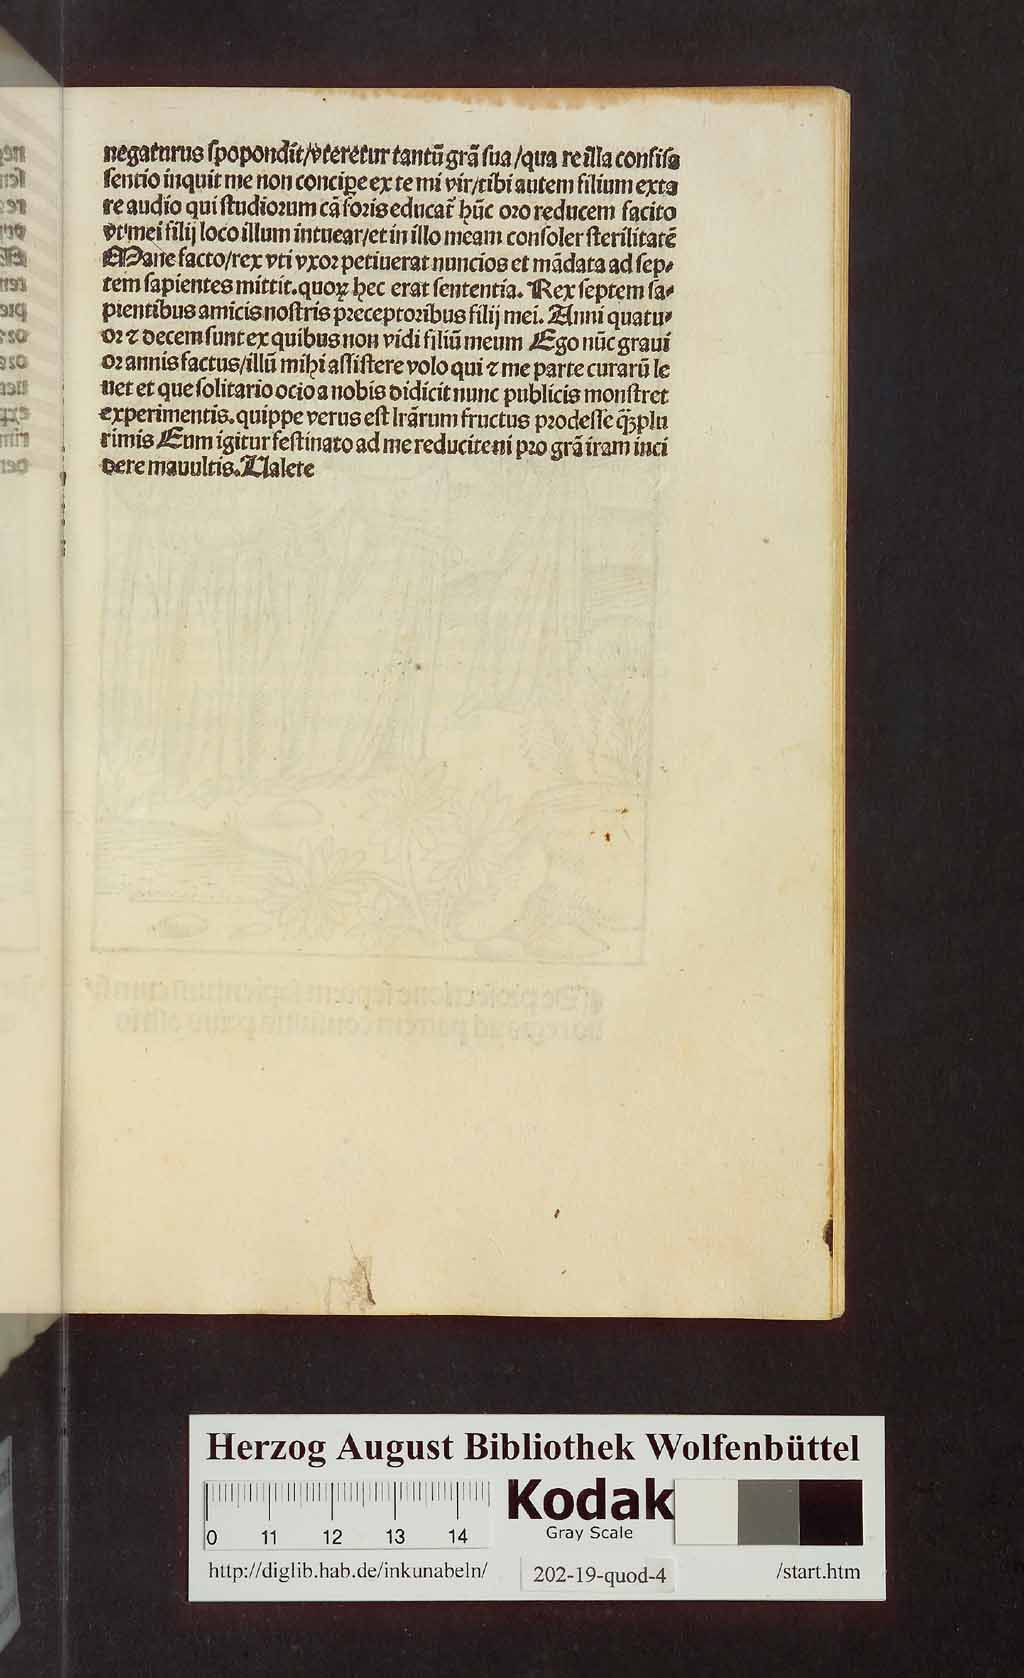 negaturus ſpopondit/vteretur tantū grā ſua/qua re illa confiſa
ſentio inquit me non concipe ex te mi vir/tibi autem filium exta
re audio qui ſtudioꝛum cā foꝛis educat̄ hūc oꝛo reducem facito
vt mei filij loco illum intuear/et in illo meam conſoler ſterilitatē
Mane facto/rex vti vxoꝛ petiuerat nuncios et mādata ad ſep⸗
tem ſapientes mittit.quoꝝ hec erat ſententia. Rex ſeptem ſa⸗
pientibus amicis noſtris pꝛeceptoꝛibus filij mei. Anni quatu⸗
oꝛ ⁊ decem ſunt ex quibus non vidi filiū meum Ego nūc graui
oꝛ annis factus/illū mihi aſſiſtere volo qui ⁊ me parte curarū le
uet et que ſolitario ocio a nobis didicit nunc publicis monſtret
experimentis.quippe verus eſt lrārum fructus pꝛodeſſe q̄ꝫplu
rimis Eum igitur feſtinato ad me reducite ni pꝛo grā iram inci
dere mauultis.Ualete
Herzog August Bibliothek Wolfenbüttel
Kodak
Gray Scale
0 11 12 13 14
http://diglib.hab.de/inkunabeln/ 202-19-quod-4 /start.htm